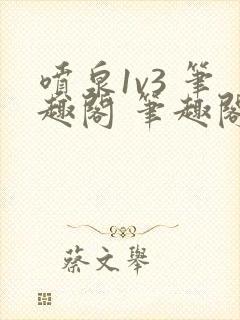 噴泉1v3 筆
趣閣 筆趣閣
蔡文舉